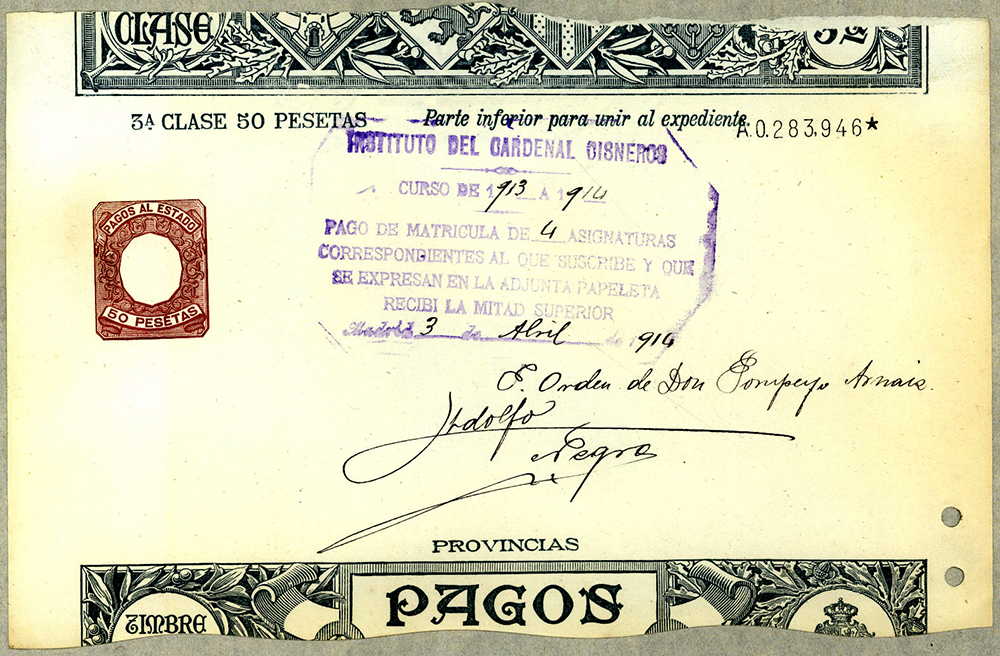 CLASE
3ª CLASE 50 PESETAS Parte inferior para unir al expediente. A.0.283.946*
INSTITUTO DEL CARDENAL CISNEROS
CURSO DE 1913 A 1914
PAGO DE MATRICULA DE 4 ASIGNATURAS
CORRESPONDIENTES AL QUE SUSCRIBE Y QUE
SE EXPRESAN EN LA ADJUNTA PAPELETA
RECIBI LA MITAD SUPERIOR
Madrid 3 de Abril de 1914
PAGOS AL ESTADO
50 PESETAS
P. Orden de Don Pompeyo Arnais.
Adolfo
Negro
PROVINCIAS
TIMBRE
PAGOS